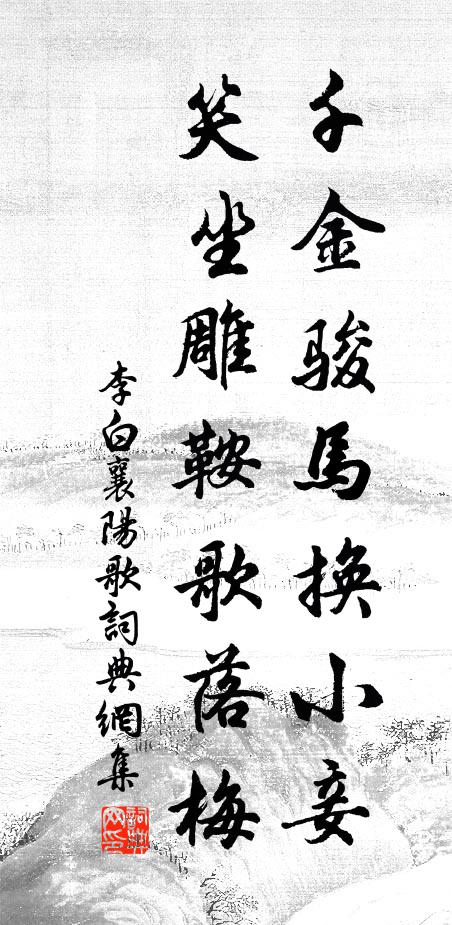 千金骏馬換小妾
笑坐雕鞍歌落梅
李白襄陽歌詞典網集